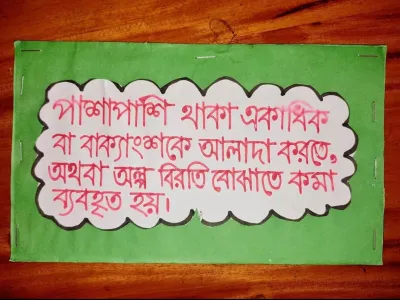 পাশাপাশি থাকা একাধিক
বা বাক্যাংশকে আলাদা করতে,
অথবা অল্প বিরতি বোঝাতে কমা
ব্যবহৃত হয়।